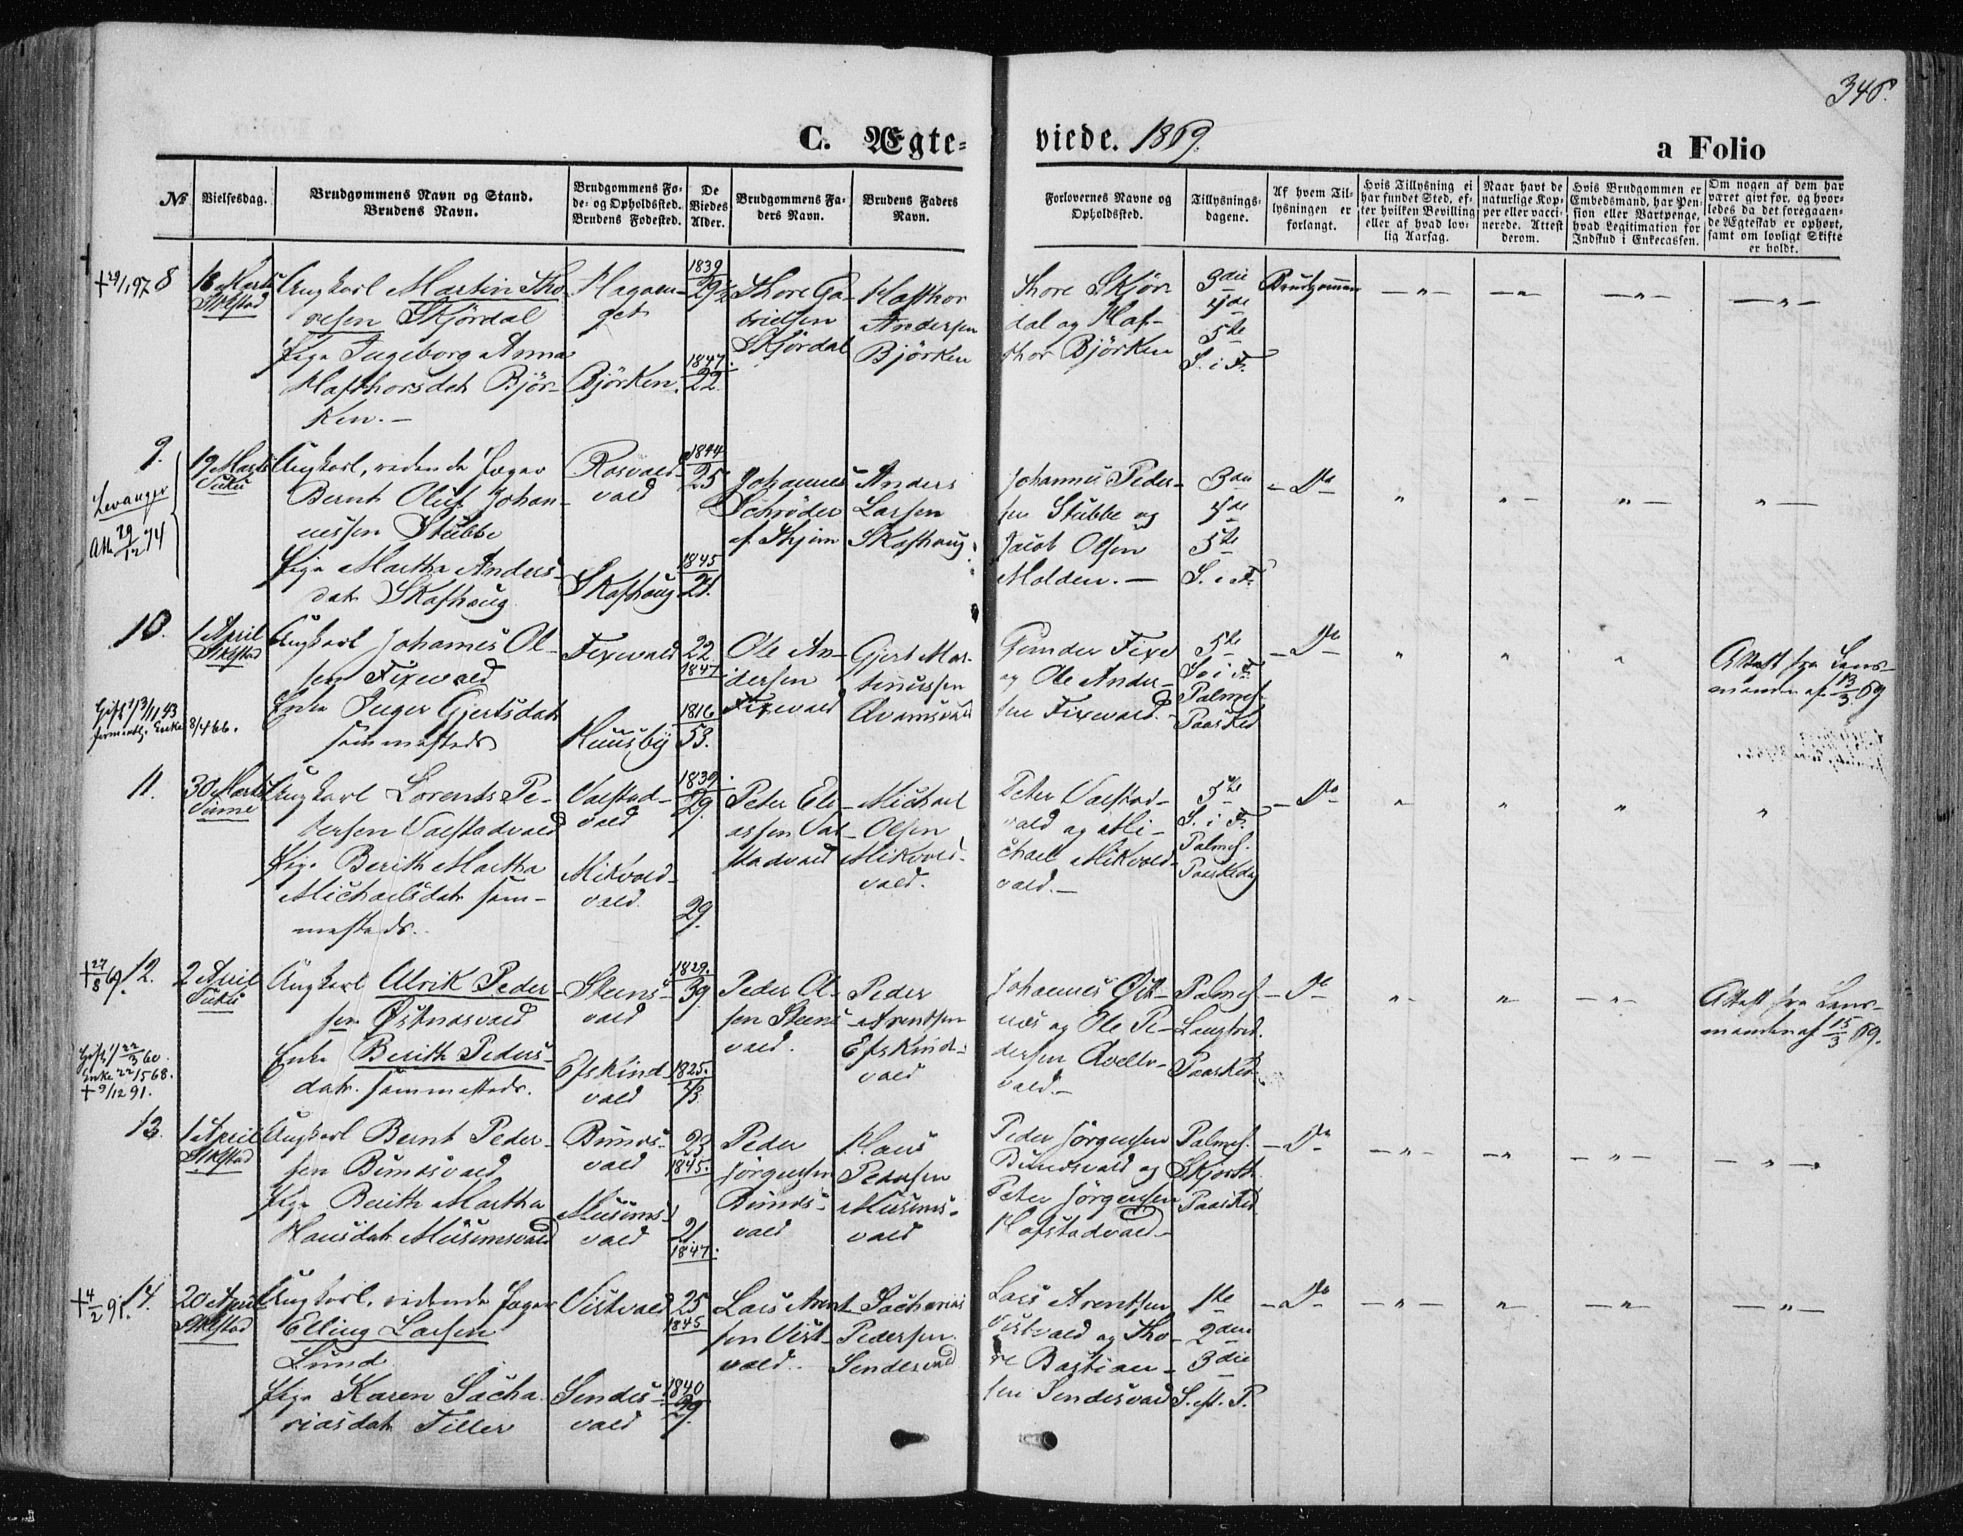 346.
C. Ægte-
viede. 1869.
a Folio
No
Vielsesdag.
Brudgommens Navn og Stand.
Brudens Navn.
Brudgommens Fø-
de- og Opholdssted.
Brudens Fødested.
De
Viedes
Alder.
Brudgommens Fa-
ders Navn.
Brudens Faders
Navn.
Forlovernes Navne og
Opholdssted.
Tillysnings-
dagene.
Af hvem Til-
lysningen er
forlangt.
Hvis Tillysning ei
har fundet Sted, ef-
ter hvilken Bevilling
eller af hvad lov-
lig Aarsag.
Naar havt de
naturlige Kop-
per eller vacci-
nerede. Attest
derom.
Hvis Brudgommen er
Embedsmand, har Pen-
sion eller Vartpenge,
hvad Legitimation for
Indskud i Enkecassen.
Om nogen af dem har
været givt før, og hvor-
ledes da det foregaaen-
de Ægteskab er ophørt,
samt om lovligt Skifte
er holdt.
8
18 Marts
Ungkarl Martin Tho-
resen Skjördal
Pige Ingeborg Anna
Hafthorsdat Björ-
ken. —
Björken
1839
29
1847
22
Thore Ga-
brielsen
Skjördal
Hafthor
Andersen
Björken
Thore Skjör-
dal og Haf-
thor Björken
3die
4de
5te
S. i F.
Brudgommen
9.
Levanger
19 Marts
Ungkarl, ridende Jæger
Bernt Oluf Johan-
nessen Stubbe
Pige Martha Anders-
dat Skafhaug
Rosvold-
vald
Skafhaug
1844
25
1845
24.
Johannes
Schrøder
Anders
Larsen
Skafhaug
Johannes Peder-
sen Stubbe og
Jacob Olsen
Molden. —
3die
4de
5te
S. i F.
Do
10.
1 April
Ungkarl Johannes Ol-
sen Fixevald
Enke Inger Gjertsdat
sammesteds
Fixevald
Huusby
22
1847
1816
53.
Ole An-
dersen
Fixevald
Gjert Mar-
tinussen
og Ole Ander-
sen Fixevald.
5te
S. i F.
Palmes.
Paaskd
Do
Attest fra Lens-
manden af 13/3 69
11.
30 Marts
Ungkarl Lorents Pe-
dersen Valstadvald
Pige Berith Martha
Michaelsdat sam-
mesteds.
Valstad-
vald
Mikvold-
vald
1839.
29.
29.
Peter Eli-
assen Val-
stadvald
Michael
Olsen
Mikvold-
vald.
Peter Valstad-
vald og Mi-
chael Mikvold-
vald. —
5te
S. i F.
Palmes.
Paaskdag
Do
12.
2 April
Ungkarl Ulrik Peder-
sen Østnæsvald
Enke Berith Peders-
dat. sammesteds.
Steens-
vald
Efskind-
vald
1829.
39
1825.
43
Peder Ol-
sen Steens-
vald.
Peder
Arentsen
Efskind-
vald
Johannes Øst-
næs og Ole Pe-
dersen
vald. —
Palmes.
Langfred.
Paaskd.
Do
Attest fra Lens-
manden af 15/3 69.
13.
1 April
Ungkarl Bernt Peder-
sen
Pige Berith Martha
Hansdat Musumsvald
Musums-
vald
23
1845.
21
1847.
Peder
Jörgensen
Hans
Pedersen
Musums-
vald
Peder Jörgensen
Peter Jörgensen
Hofstadvald
Palmes.
Skjærth.
Paaskd
Do
14.
20 April
Ungkarl, ridende Jæger
Elling Larsen
Lund
Pige Karen Sacha-
riasdat Tiller
Vistvald
Sendes-
vald
25
1845
1840
29.
Lars Arent-
sen Vist-
vald.
Sacharias
Pedersen
Sendesvald
Lars Arentsen
Vistvald og Tho-
re Bastian-
sen Sendesvald
1ste
2den
3die
S. eft. P.
Do